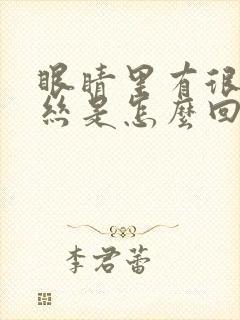 眼睛里有很
丝是怎麼回
李君蕾